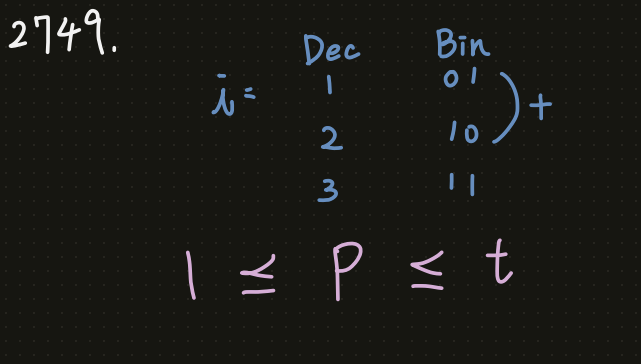 2749.
Dec Bin
i= 1 01
2 10 ) +
3 11
1 ≤ P ≤ t